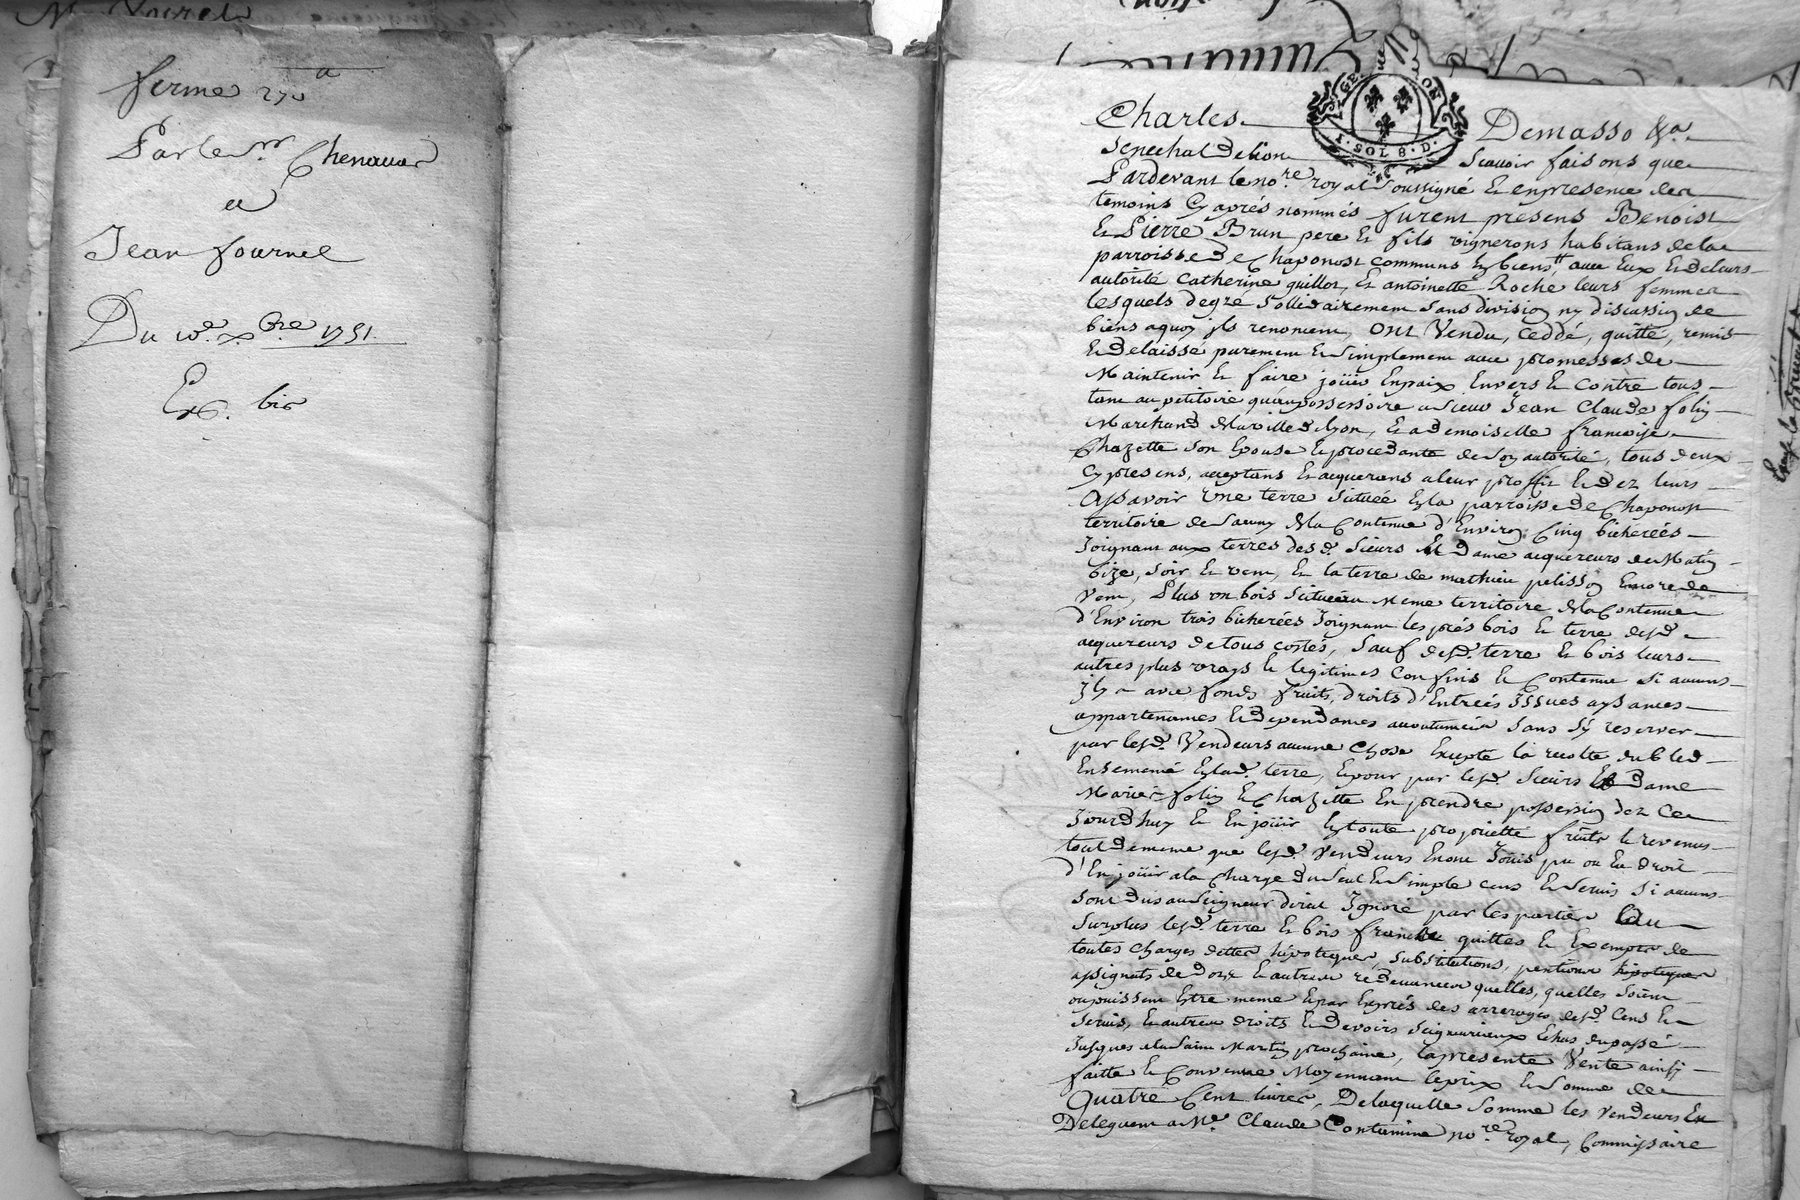 ferme 270#
Par le Sr Chenavar
a
Jean fournel
Du 10e xbre 1751.
Ex. bis
GE. LION
1. SOL 8. D.
Charles Demasso &a
Senechal De lion Scavoir faisons que
Pardevant le nore royal soussigné et en presence des
temoins cy aprés nommés furent presens Benoist
et Pierre Brun pere et fils vignerons habitans de la
parroisse de Chaponost communs en biens, avec eux et de leurs
autorité Catherine guillot, et antoinette Roche leurs femmes
lesquels de gré sollidairement sans division ny discussion de
biens a quoy ils renoncent, ont Vendu, ceddé, quitté, remis
et delaissé purement et simplement avec promesses de
Maintenir et faire joüir en paix envers et contre tous
tant au petitoire qu'au possessoire a sieur Jean Claude foliy
Marchand de la ville de lyon, et a demoiselle francoise
Chazette son epouse et procedante de son autorité, tous deux
cy presens, acceptans et acquerans a leur proffit et dez leurs
Assavoir une terre située en la parroisse de Chaponost
territoire de de la Contenue d'Environ Cinq bicherées
Joignant aux terres desd. sieurs et Dame acquereurs de Matin
bize, soir et vent, et la terre de mathieu pelisson encore de
vent, Plus un bois scitué au meme territoire de la Contenue
d'Environ trois bicherées Joignant les prés bois et terre desd.
acquereurs de tous costés, sauf desd. terre et bois leurs
autres plus vrays et legitimes Confins et Contenue si aucuns
il y a avec fonds fruits, droits d'Entrées Issues aysances
appartenances et dependances accoutumées sans s'y reserver
par lesd. Vendeurs aucune chose Excepté la recolte du bled
Ensemencé en lad. terre, et pour par lesd. sieurs et Dame
Mariés foliy et Chazette En prendre possession dez ce
Jourdhuy et en joüir en toute proprietté fruits et revenus
tout de meme que lesd. Vendeurs En ont Joüis pu ou eu droit
d'En joüir a la charge du seul et simple cens et servis si aucuns
sont dus au Seigneur direct Ignoré par les parties au
surplus lesd. terre et bois francs quittes et Exempts de
toutes charges dettes hipoteques, substitutions, pentions hipoteques
assignats de dots et autres redevances quelles, quelles soient
ou puissent Estre meme et par Exprés des arrerages desd. Cens et
servis, et autres droits et devoirs seigneuriaux Echus du passé
Jusques a la saint Martin prochaine, la presente Vente ainsy
faitte et Convenue Moyennant le prix et somme de
Quatre Cent livres, De laquelle somme les vendeurs En
Deleguent a Me. Claude Contamine nore royal, Commissaire